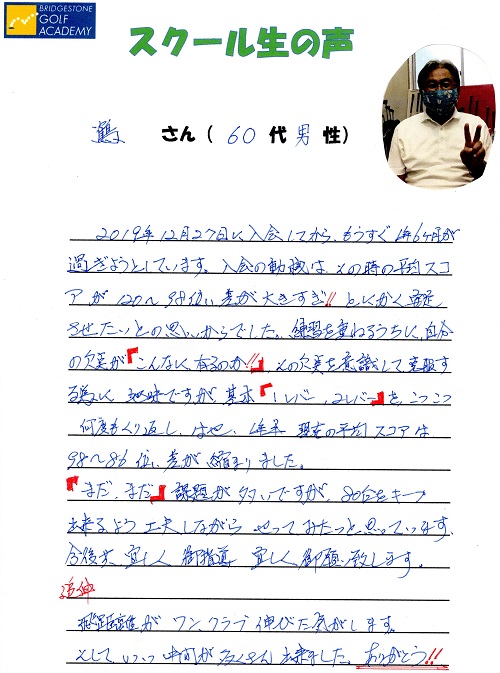 BRIDGESTONE
GOLF
ACADEMY
スクール生の声
鶴 さん( 60 代 男 性)
2019年12月27日に入会してから、もうすぐ1年6ヶ月が
過ぎようとしています。入会の動機は、その時の平均スコ
アが120〜98位い差が大きすぎ!! とにかく安定
させたいとの思いからでした。練習を重ねるうちに、自分
の欠点が『こんなに有るのか!!』、その欠点を意識して克服す
る為に 地味ですが、基本『1レバー、2レバー』を、こつこつ
何度もくり返し、はや、1年半 現在の平均スコアは
98〜86位、差が縮まりました。
『まだ、まだ』課題が多いですが、80台をキープ
出来るよう工夫しながら やってみたいと思っています。
今後共 宜しく御指導 宜しく御願い致します。
追伸
飛距離がワン、クラブ伸びた気がします。
そして 仲間がたくさん出来ました。ありがとう!!